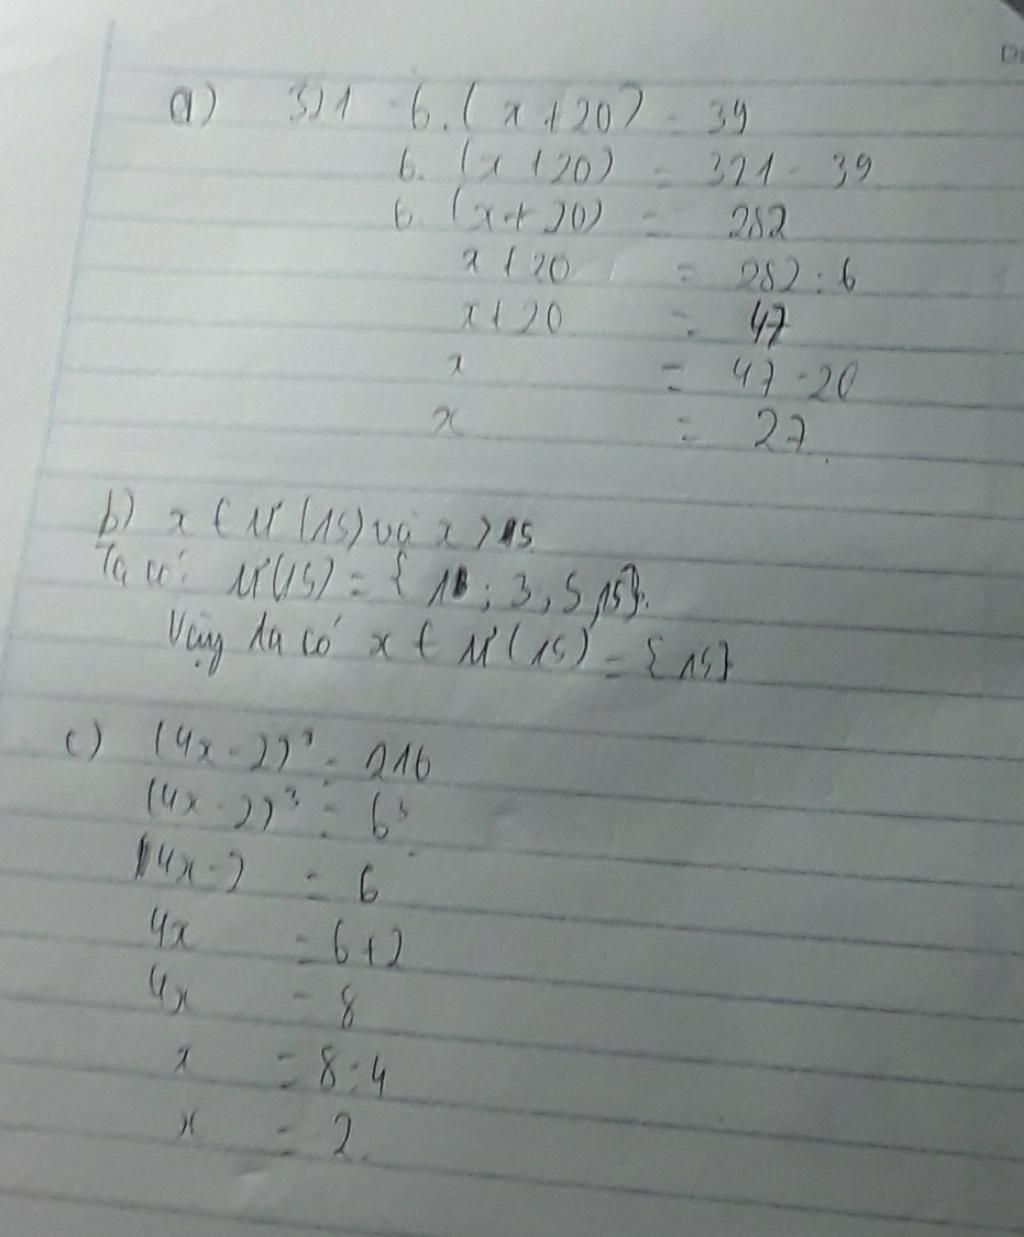 a) 321 - 6.(x+20) = 39
6. (x+20) = 321 - 39
6. (x+20) = 282
x+20 = 282:6
x+20 = 47
x = 47-20
x = 27.
b) x ∈ Ư(15) và x > 15
Ta có: Ư(15) = { 1 ; 3, 5, 15}.
Vậy ta có x ∈ Ư(15) = {15}
c) (4x-2)³ = 216
(4x-2)³ = 6³
4x-2 = 6
4x = 6+2
4x = 8
x = 8:4
x = 2.